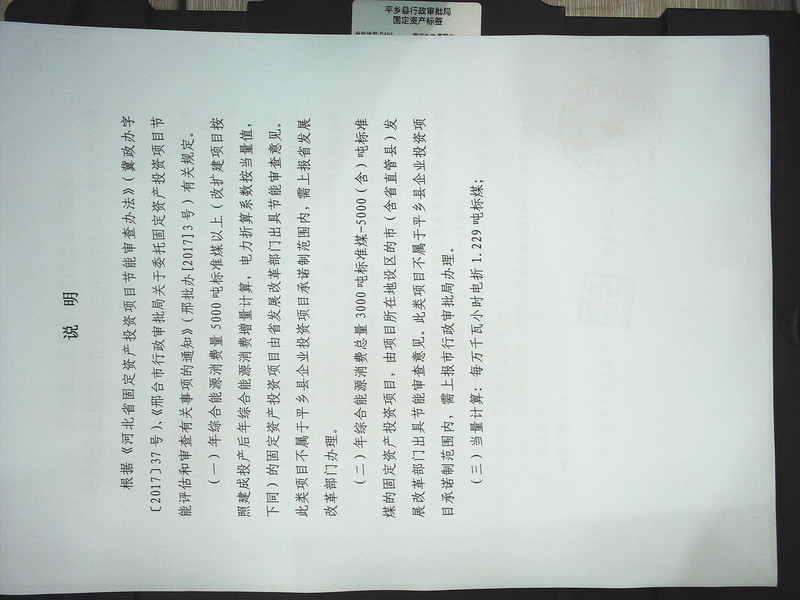 平乡县行政审批局
固定资产标签
说 明
根据《河北省固定资产投资项目节能审查办法》（冀政办字
〔2017〕37 号）、《邢台市行政审批局关于委托固定资产投资项目节
能评估和审查有关事项的通知》（邢批办[2017]3 号）有关规定。
（一）年综合能源消费量 5000 吨标准煤以上（改扩建项目按
照建成投产后年综合能源消费增量计算，电力折算系数按当量值，
下同）的固定资产投资项目由省发展改革部门出具节能审查意见。
此类项目不属于平乡县企业投资项目承诺制范围内，需上报省发展
改革部门办理。
（二）年综合能源消费总量 3000 吨标准煤-5000（含）吨标准
煤的固定资产投资项目，由项目所在地设区的市（含省直管县）发
展改革部门出具节能审查意见。此类项目不属于平乡县企业投资项
目承诺制范围内，需上报市行政审批局办理。
（三）当量计算：每万千瓦小时电折 1.229 吨标煤；